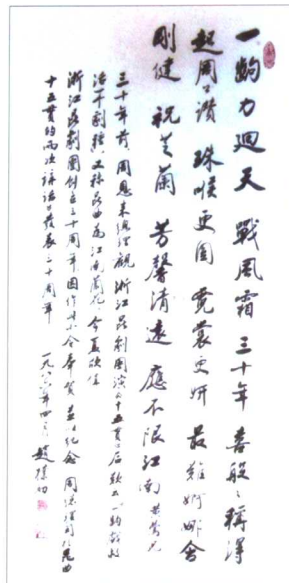 一齣力迴天 戰風霜 三十年 喜般般稱得
起周公讚 珠喉更圓 霓裳更妍 最難婀娜含
剛健 祝芝蘭 芳馨清遠 應不限江南 黃鶯兒
三十年前 周恩来總理觀浙江崑劇團演出十五貫之后 歎為一齣戲救
活一個劇種 又稱崑曲為江南蘭花 今直欣值
浙江崑劇團創立三十周年 因作此小令奉賀 并以紀念 周總理關於崑曲
十五貫的兩次講話發表三十周年
一九八六年四月 趙樸初